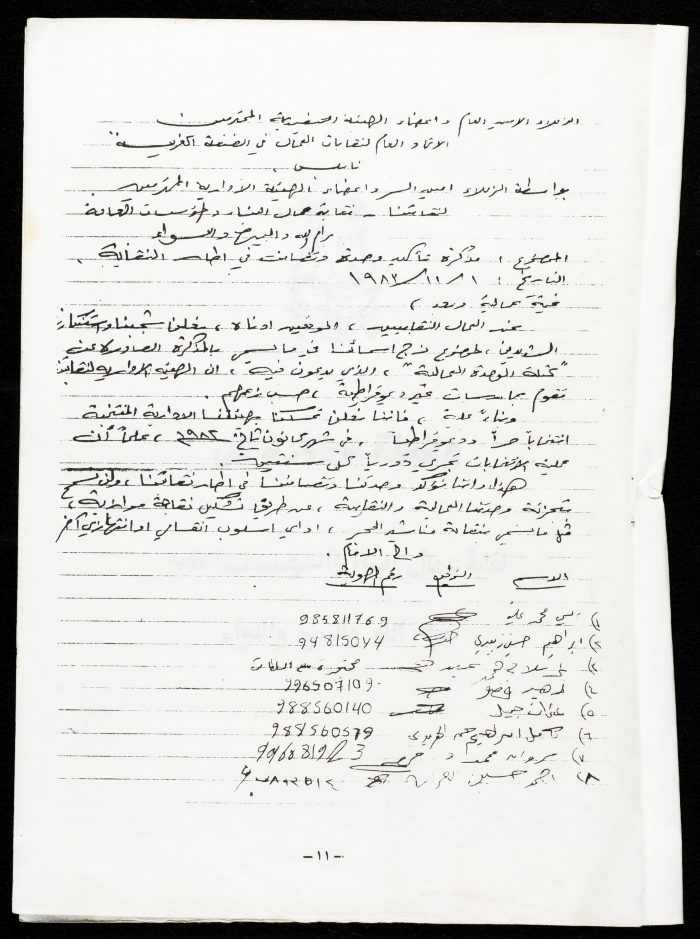 الزملاء الامين العام واعضاء الهيئة التنفيذية المحترمين
الاتحاد العام لنقابات العمال في الضفة الغربية
نابلس .
بواسطة الزملاء امين السر واعضاء الهيئة الادارية المحترمين
لنقابتنا – نقابة عمال البناء والمؤسسات العامة
رام الله والبيرة واللواء
الموضوع : مذكرة تأكيد وحدة وتضامن في اطار النقابة
التاريخ : ١ / ١١ / ١٩٨٣
تحية عمالية وبعد ،
نحن العمال النقابيين ، الموقعين ادناه ، نعلن شجبنا واستنكارنا
الشديدين ، لموضوع زج اسمائنا في ما يسمى بالمذكرة الصادرة عن
" كتلة الوحدة العمالية " ، الذي يدعون فيه ، ان الهيئة الادارية لنقابتنا
تقوم بممارسات غير ديموقراطية ، حسب زعمهم .
وبناء عليه ، فاننا نعلن تمسكنا بهيئتنا الادارية المنتخبة
انتخاباً حراً وديموقراطياً ، في شهر كانون ثاني ١٩٨٢ ، علماً أن
عملية الانتخابات تجري دورياً كل سنتين
هذا واننا نؤكد وحدتنا وتضامننا في اطار نقابتنا ، ولن نسمح
بتجزئة وحدتنا العمالية والنقابية ، عن طريق تشكيل نقابة موازية ،
مثل ما يسمى بنقابة مناشير الحجر ، او اي اسلوب انقسامي او انتهازي آخر
والى الامام .
الاسم التوقيع رقم الهوية
١) محمد 98581176.9
٢) ابراهيم حسن 94815044
٣) عبد
٤) زهير 996507109
٥) عدنان جميل 988560140
٦) كامل ابراهيم 988560579
٧) مروان محمد
٨) احمد حسين
-١١-